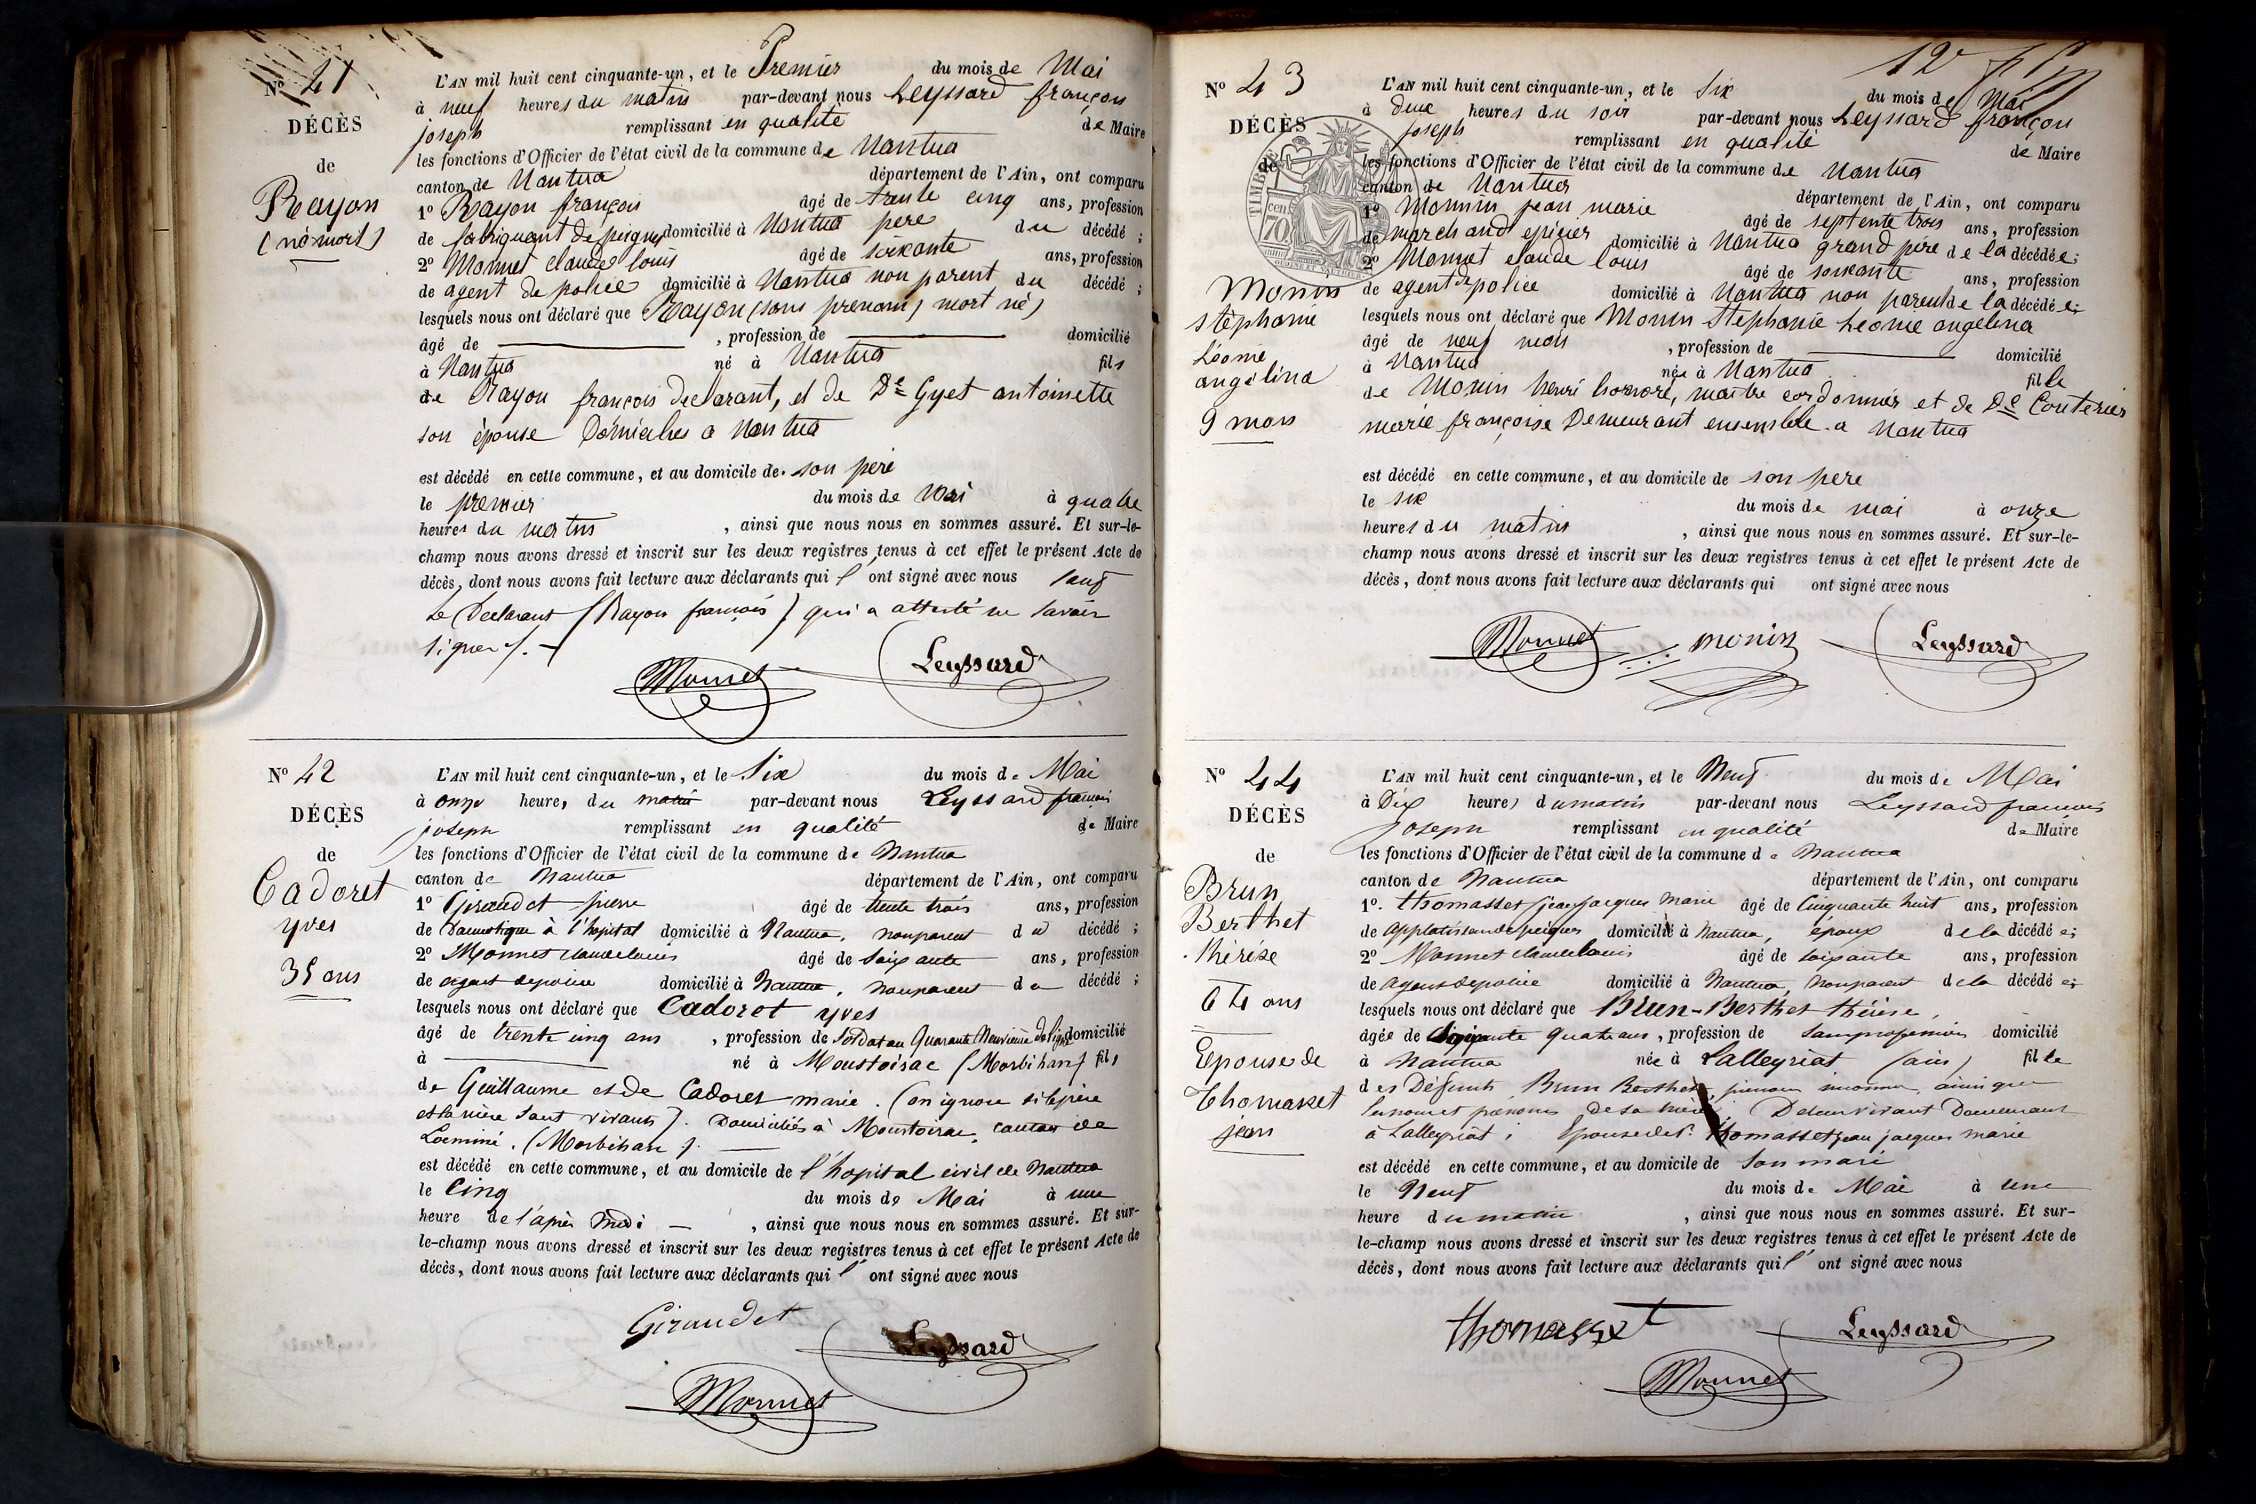 N° 41
DÉCÈS
de
Rayon
(né mort)
L'AN mil huit cent cinquante-un, et le Premier du mois de Mai
à neuf heures du matin par-devant nous Leyssard françois
joseph remplissant en qualité de Maire
les fonctions d'Officier de l'état civil de la commune de Nantua
canton de Nantua département de l'Ain, ont comparu
1° Rayon françois âgé de trente cinq ans, profession
de fabriquant de peignes domicilié à Nantua pere du décédé ;
2° Monnet claude louis âgé de soixante ans, profession
de agent de police domicilié à Nantua non parent du décédé ;
lesquels nous ont déclaré que Rayon (sans prenom) mort né)
âgé de , profession de domicilié
à Nantua né à Nantua fils
de Rayon françois declarant, et de De Gyet antoinette
son épouse Domiciliés a Nantua
est décédé en cette commune, et au domicile de son père
le premier du mois de mai à quatre
heures du matin , ainsi que nous nous en sommes assuré. Et sur-le-
champ nous avons dressé et inscrit sur les deux registres tenus à cet effet le présent Acte de
décès, dont nous avons fait lecture aux déclarants qui l' ont signé avec nous sauf
Le Declarant (Rayon françois) qui a attesté ne savoir
signer /.
Monnet Leyssard
N° 42
DÉCÈS
de
Cadoret
yves
35 ans
L'AN mil huit cent cinquante-un, et le Six du mois de Mai
à onze heures du matin par-devant nous Leyssard francois
joseph remplissant en qualité de Maire
les fonctions d'Officier de l'état civil de la commune de Nantua
canton de Nantua département de l'Ain, ont comparu
1° Giraudet pierre âgé de trente trois ans, profession
de Domestique à l'hopital domicilié à Nantua, non parent du décédé ;
2° Monnet claude louis âgé de soixante ans, profession
de agent de police domicilié à Nantua, non parent du décédé ;
lesquels nous ont déclaré que Cadoret yves
âgé de trente cinq ans , profession de Soldat au Quarante Neuvième de ligne domicilié
à né à Moustoirac (Morbihan) fils
de Guillaume et de Cadoret marie. (on ignore si le père
et la mère sont vivants). Domiciliés à Moustoirac, canton de
Locminé. (Morbihan).
est décédé en cette commune, et au domicile de l'hopital civil de Nantua
le Cinq du mois de Mai à une
heure de l'après midi , ainsi que nous nous en sommes assuré. Et sur-
le-champ nous avons dressé et inscrit sur les deux registres tenus à cet effet le présent Acte de
décès, dont nous avons fait lecture aux déclarants qui l' ont signé avec nous
Giraudet
Leyssard
Monnet
12e
N° 43
DÉCÈS
de
Monin
stéphanie
Léonie
angélina
9 mois
TIMBRE
70 cent.
L'AN mil huit cent cinquante-un, et le Six du mois de Mai
à deux heures du soir par-devant nous Leyssard françois
joseph remplissant en qualité de Maire
les fonctions d'Officier de l'état civil de la commune de Nantua
canton de Nantua département de l'Ain, ont comparu
1° Monnin jean marie âgé de septente trois ans, profession
de marchand epicier domicilié à Nantua grand pére de la décédée ;
2° Monnet claude louis âgé de soixante ans, profession
de agent de police domicilié à Nantua non parent de la décédée ;
lesquels nous ont déclaré que Monin Stephanie Leonie angelina
âgé de neuf mois , profession de domicilié
à Nantua née à Nantua fille
de Monin henri honoré, maitre cordonnier et de De Couterier
marie françoise Demeurant ensemble a Nantua
est décédé en cette commune, et au domicile de son pere
le six du mois de mai à onze
heures du matin , ainsi que nous nous en sommes assuré. Et sur-le-
champ nous avons dressé et inscrit sur les deux registres tenus à cet effet le présent Acte de
décès, dont nous avons fait lecture aux déclarants qui ont signé avec nous
Monnet monin Leyssard
N° 44
DÉCÈS
de
Brun
Berthet
thérése
64 ans
Epouse de
Thomasset
jean
L'AN mil huit cent cinquante-un, et le Neuf du mois de Mai
à Dix heures du matin par-devant nous Leyssard francois
joseph remplissant en qualité de Maire
les fonctions d'Officier de l'état civil de la commune de Nantua
canton de Nantua département de l'Ain, ont comparu
1°. thomasset jean jacques marie âgé de Cinquante huit ans, profession
de applatisseur de peignes domicilié à Nantua, époux de la décédée ;
2° Monnet claude louis âgé de soixante ans, profession
de agent de police domicilié à Nantua, non parent de la décédée ;
lesquels nous ont déclaré que Brun-Berthet thérèse,
âgée de Soixante quatre ans, profession de sans profession domicilié
à Nantua née à Lalleyriat (ain) fille
des Défunts Brun Berthet, prénom inconnu, ainsi que
les nom et prénoms de sa mère, De leur vivant Demeurant
à Lalleyriat ; Epouse de Sr. thomasset jean jacques marie
est décédé en cette commune, et au domicile de son mari
le Neuf du mois de Mai à une
heure du matin , ainsi que nous nous en sommes assuré. Et sur-
le-champ nous avons dressé et inscrit sur les deux registres tenus à cet effet le présent Acte de
décès, dont nous avons fait lecture aux déclarants qui l' ont signé avec nous
thomasset Leyssard
Monnet